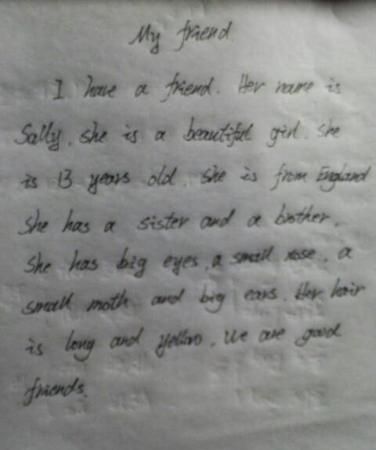 My friend
I have a friend. Her name is
Sally. she is a beautiful girl. She
is 13 years old. she is from England
She has a sister and a brother.
She has big eyes, a small nose, a
small moth and big ears. Her hair
is long and yellow. We are good
friends.